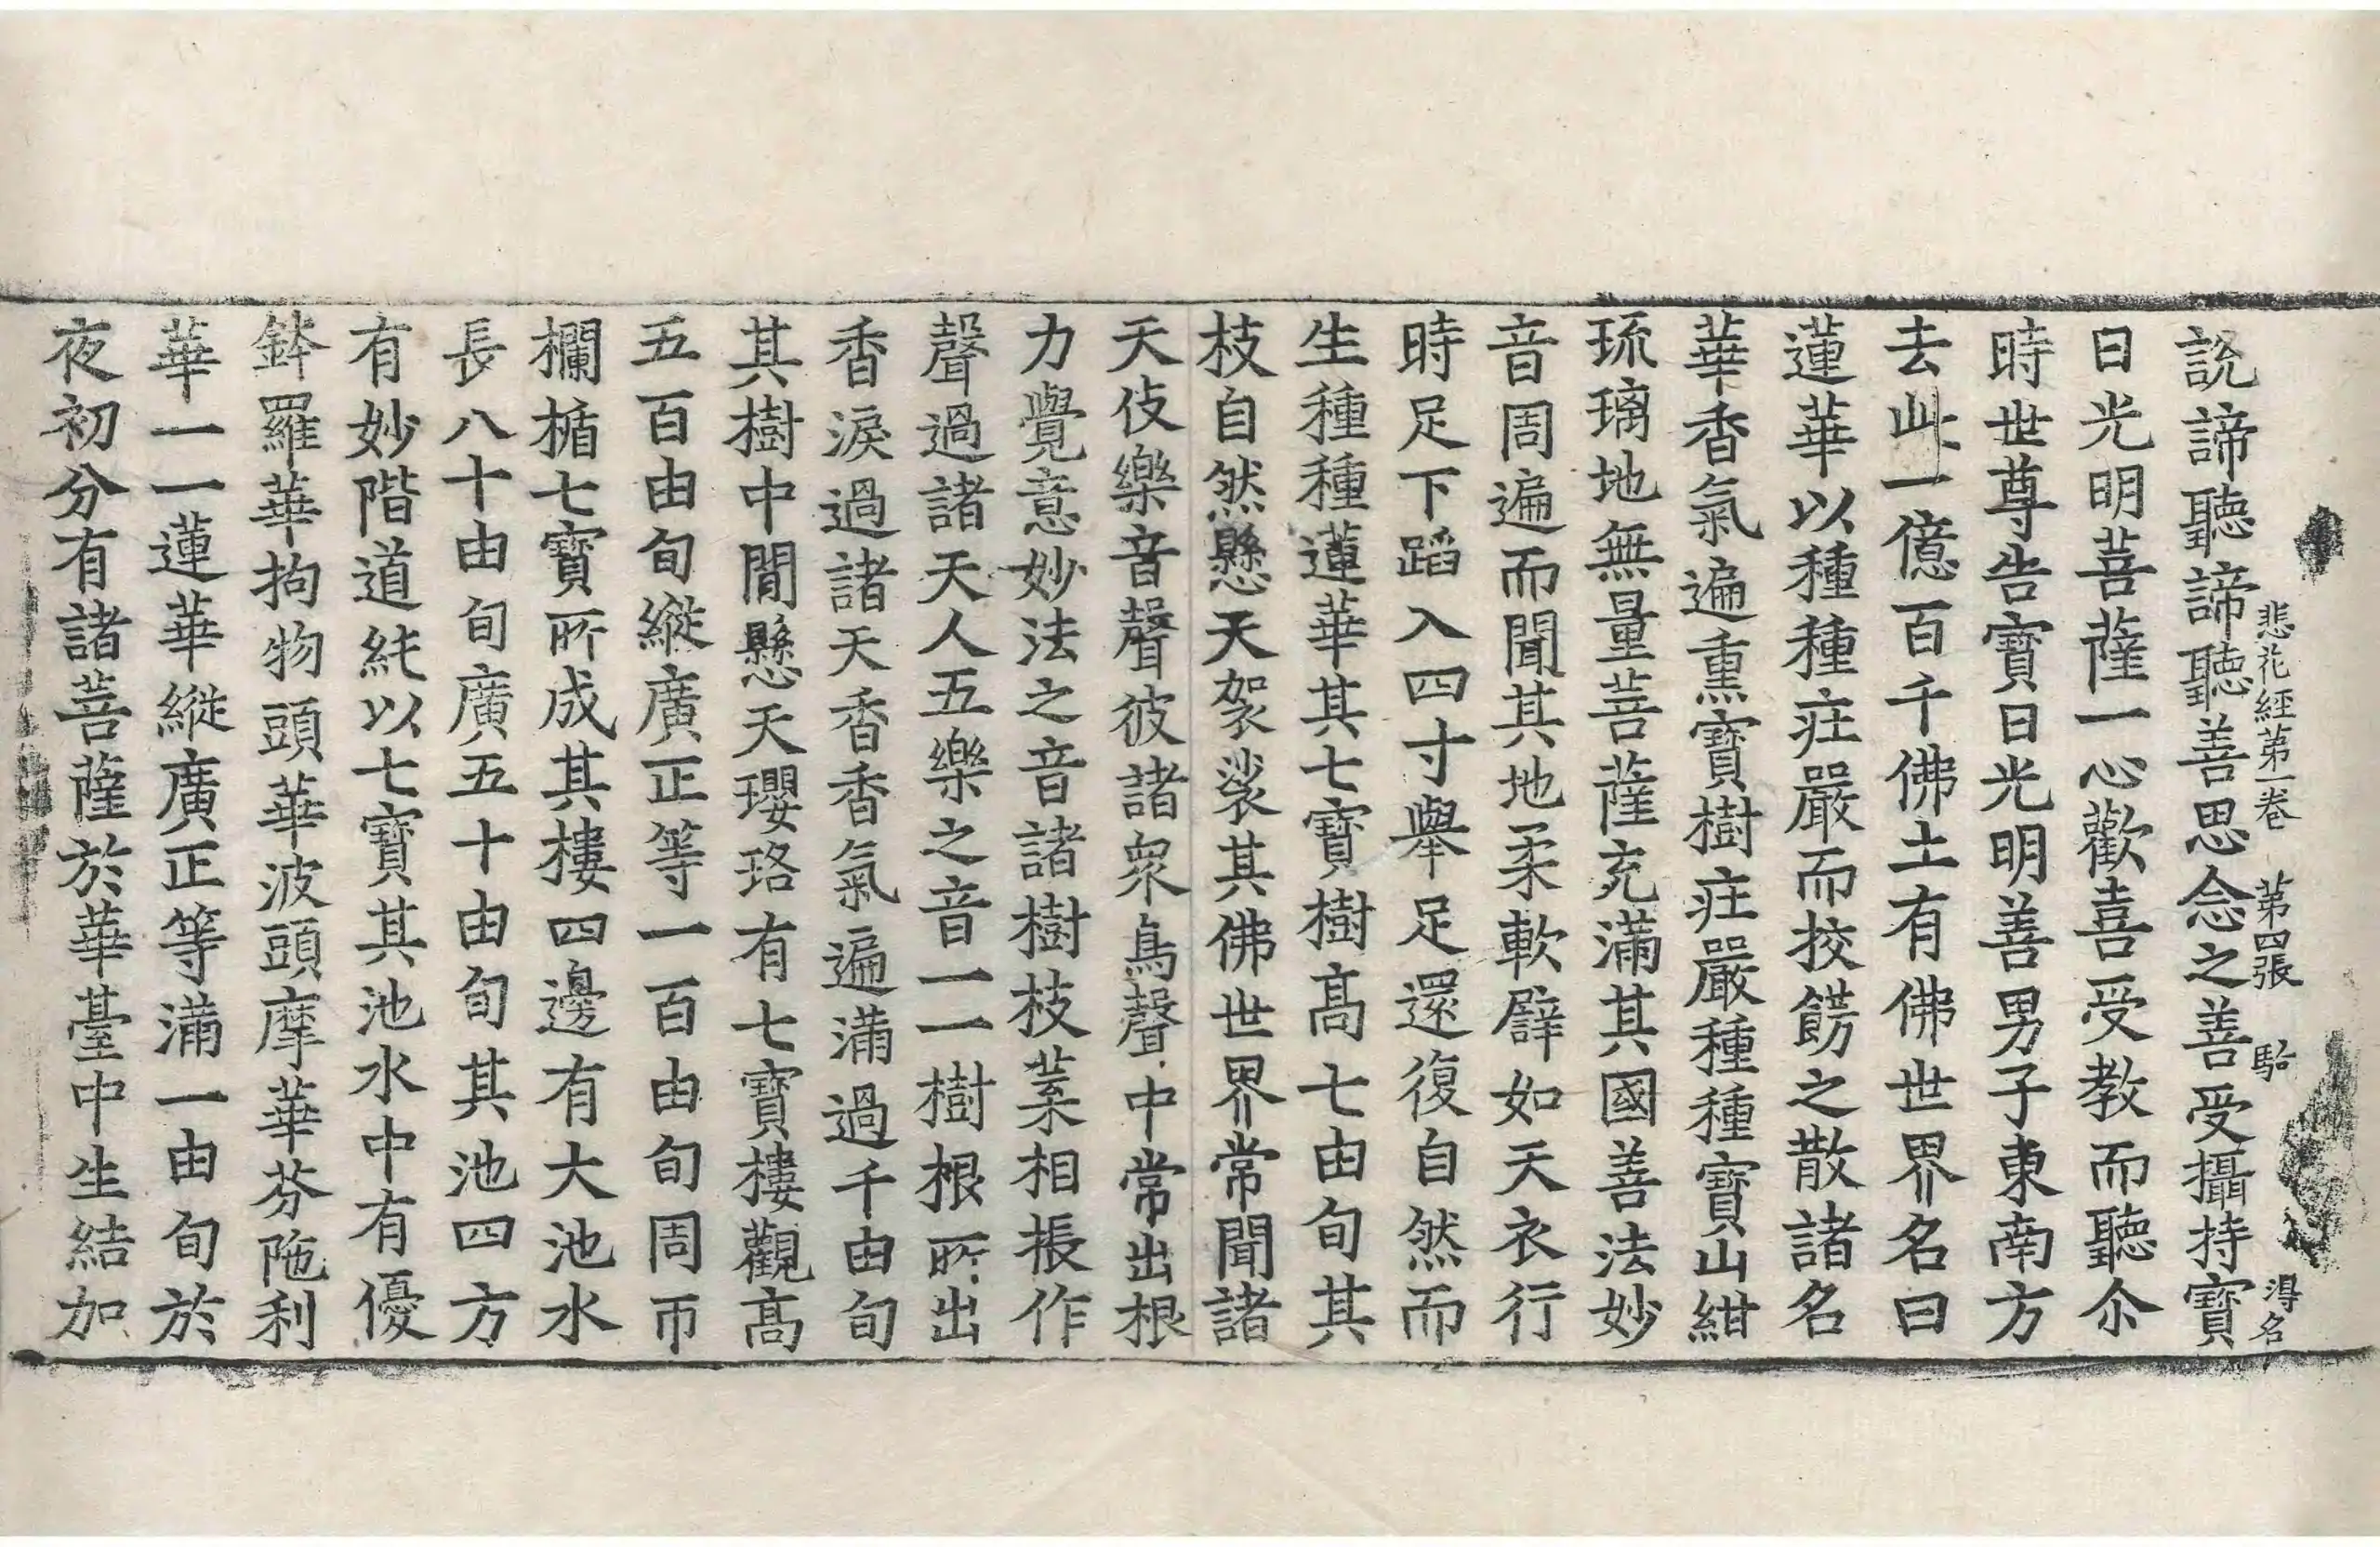 悲花經第一卷 第四張 駘 淂名
說諦聽諦聽善思念之善受攝持寶
日光明菩薩一心歡喜受教而聽尒
時世尊告寶日光明善男子東南方
去此一億百千佛土有佛世界名曰
蓮華以種種莊嚴而挍餝之散諸名
華香氣遍熏寶樹莊嚴種種寶山紺
琉璃地無量菩薩充滿其國善法妙
音周遍而聞其地柔軟辟如天衣行
時足下蹈入四寸舉足還復自然而
生種種蓮華其七寶樹髙七由旬其
枝自然懸天袈裟其佛世界常聞諸
天伎樂音聲彼諸衆鳥聲中常出根
力覺意妙法之音諸樹枝葉相振作
聲過諸天人五樂之音一一樹根所出
香淚過諸天香香氣遍滿過千由旬
其樹中間懸天瓔珞有七寶樓觀髙
五百由旬縱廣正等一百由旬周帀
欄楯七寶所成其樓四邊有大池水
長八十由旬廣五十由旬其池四方
有妙階道純以七寶其池水中有優
鉢羅華拘物頭華波頭摩華芬陁利
華一一蓮華縱廣正等滿一由旬於
夜初分有諸菩薩於華臺中生結加